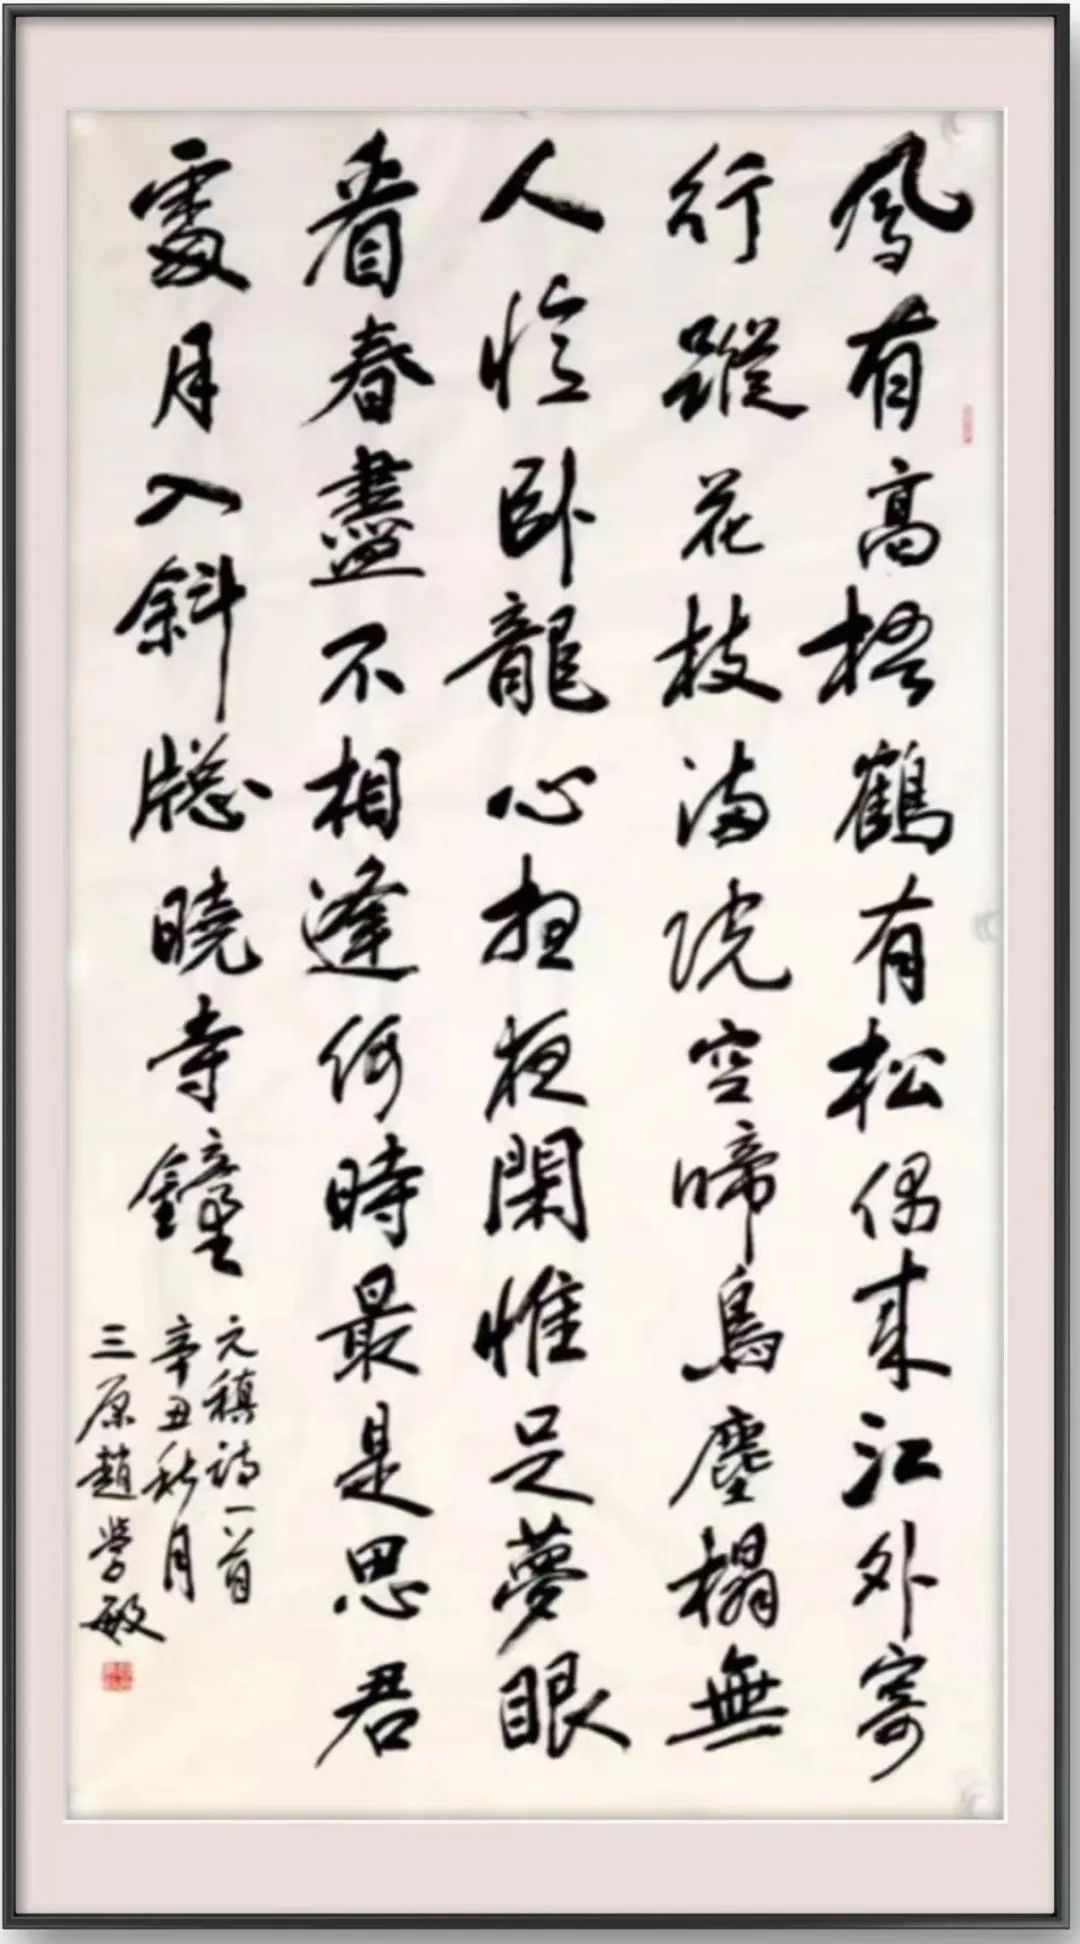 鳳有高梧鶴有松偶来江外寄
行蹤花枝滿院空啼鳥塵榻無
人憶卧龍心想夜閑惟足夢眼
看春盡不相逢何時最是思君
處月入斜牕曉寺鐘
元稹詩一首
辛丑秋月
三原趙學敏